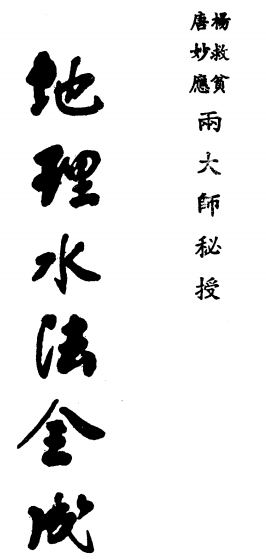 楊救貧
唐妙應
兩大師秘授
地理水法全成